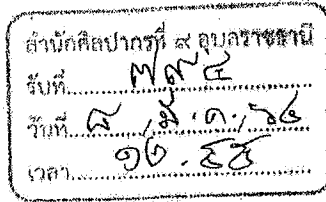 สำนักศิลปากรที่ ๙ อุบลราชธานี
รับที่ ๗๙๔
วันที่ ๘ มี.ค. ๖๔
เวลา ๑๖.๕๕